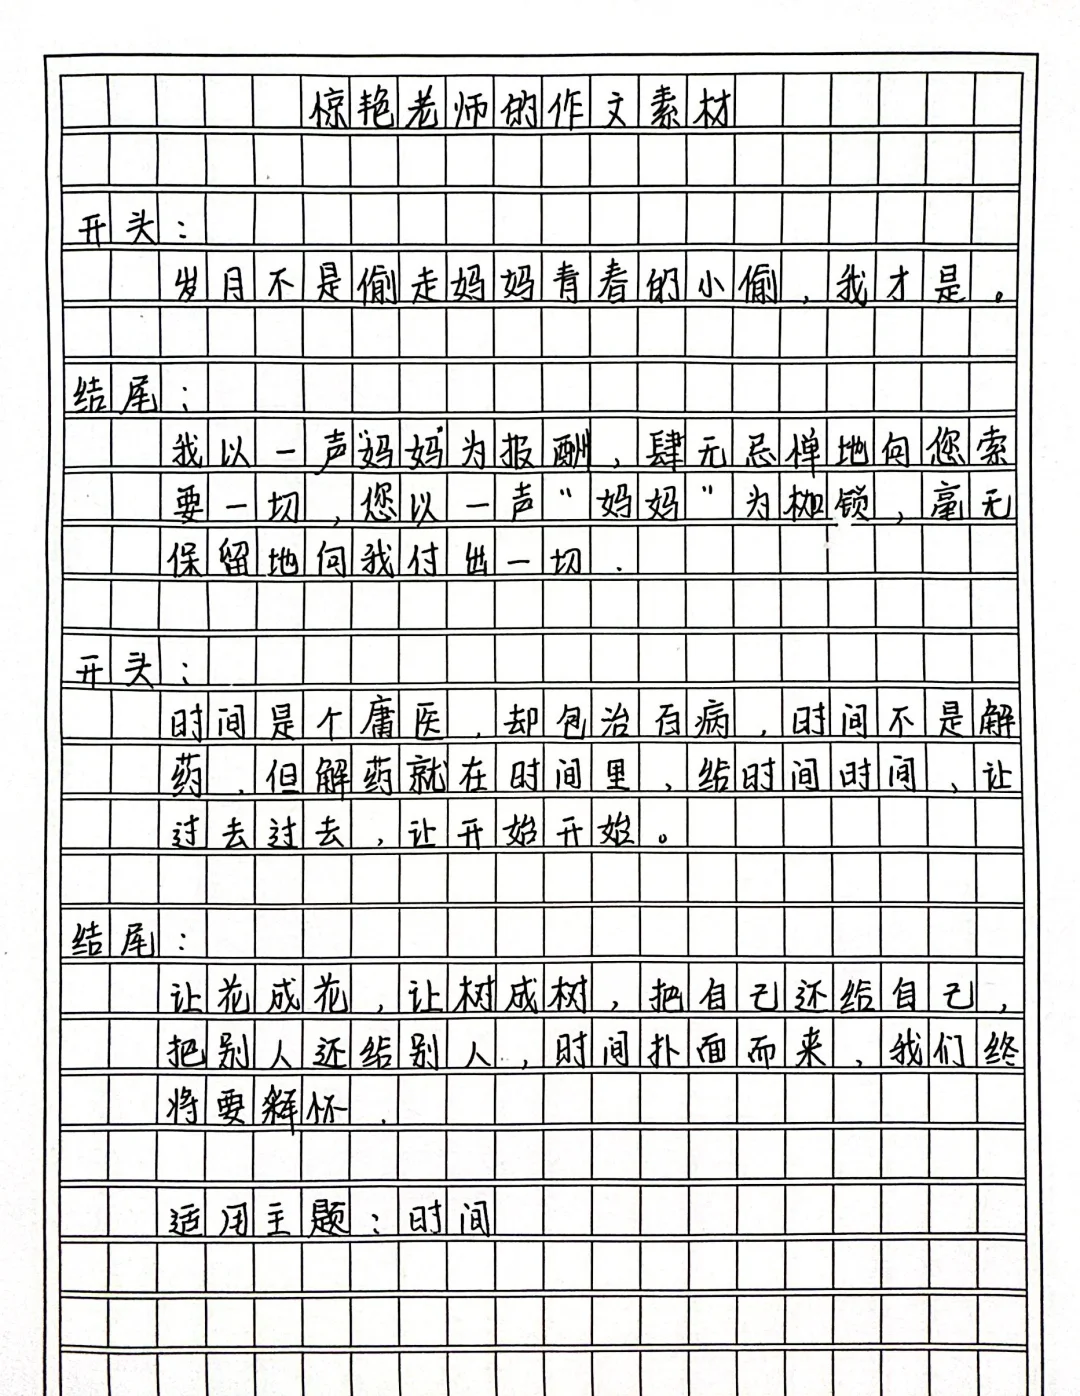 惊艳老师的作文素材
开头：
岁月不是偷走妈妈青春的小偷，我才是。
结尾：
我以一声“妈妈”为报酬，肆无忌惮地向您索
要一切，您以一声“妈妈”为枷锁，毫无
保留地向我付出一切.
开头：
时间是个庸医，却包治百病，时间不是解
药，但解药就在时间里，给时间时间，让
过去过去，让开始开始。
结尾：
让花成花，让树成树，把自己还给自己，
把别人还给别人，时间扑面而来，我们终
将要释怀.
适用主题：时间